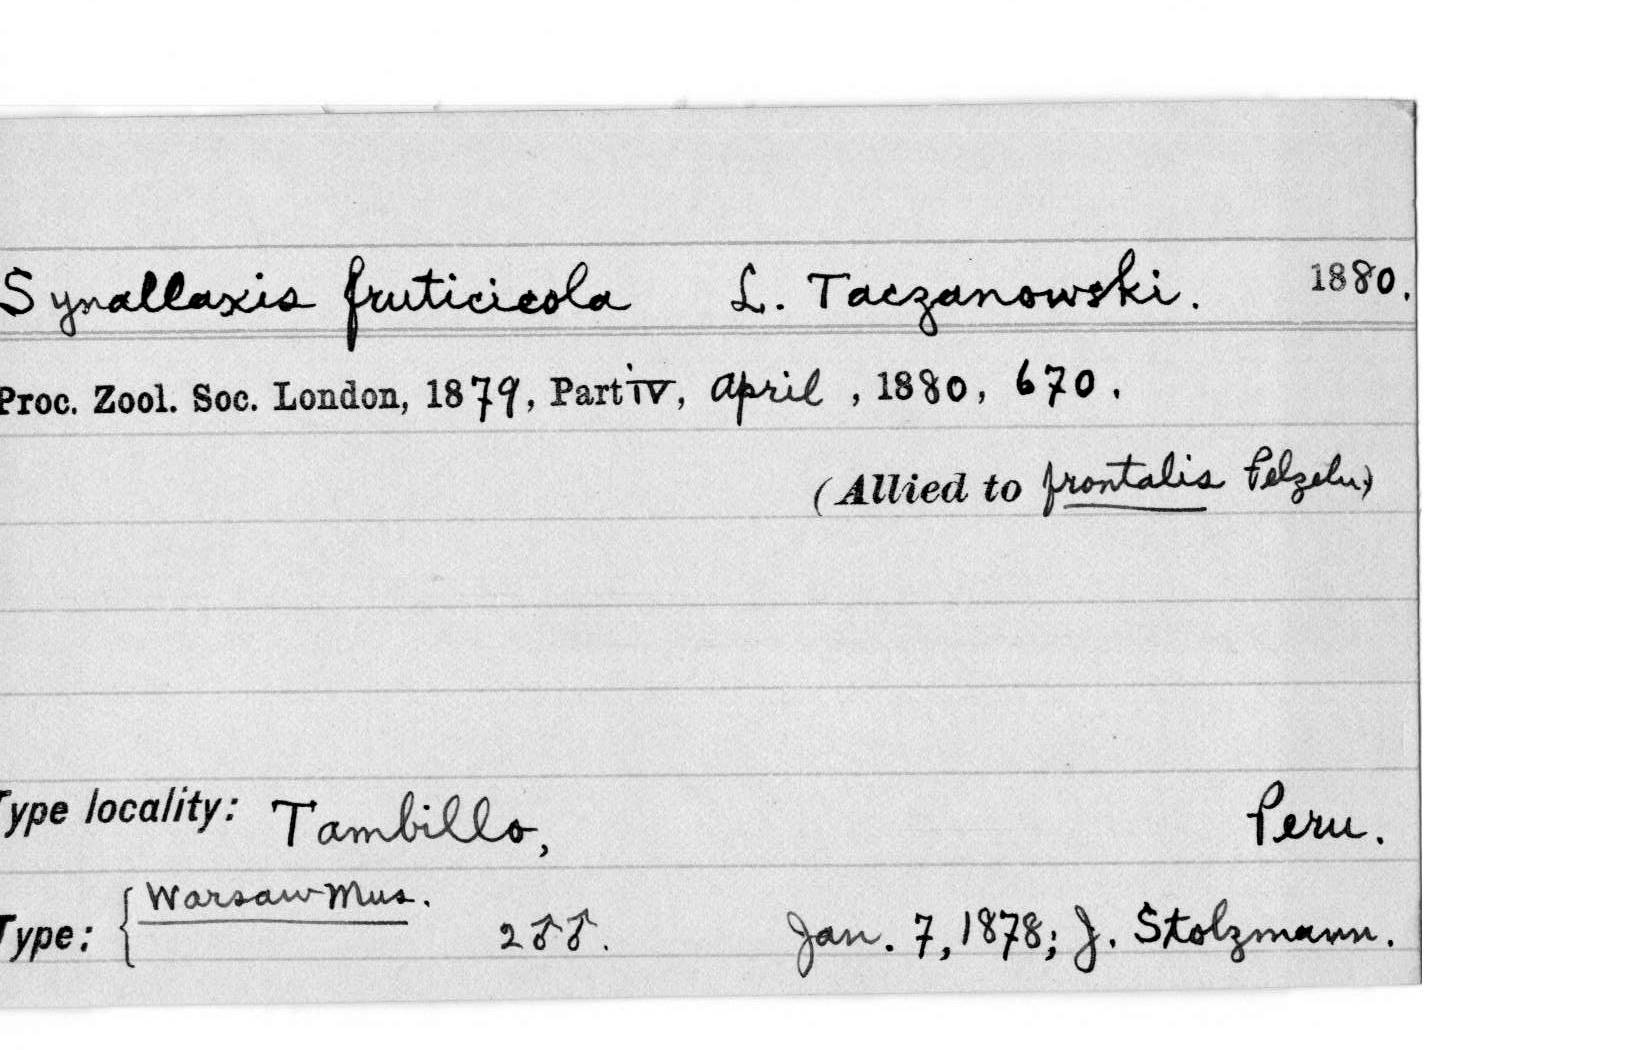 Synallaxis fruticicola L. Taczanowski. 1880.
Proc. Zool. Soc. London, 1879, Part iv, April, 1880, 670.
(Allied to frontalis Pelzeln)
Type locality: Tambillo, Peru.
Type: { Warsaw Mus. 2 ♂♂. Jan. 7, 1878; J. Stolzmann.